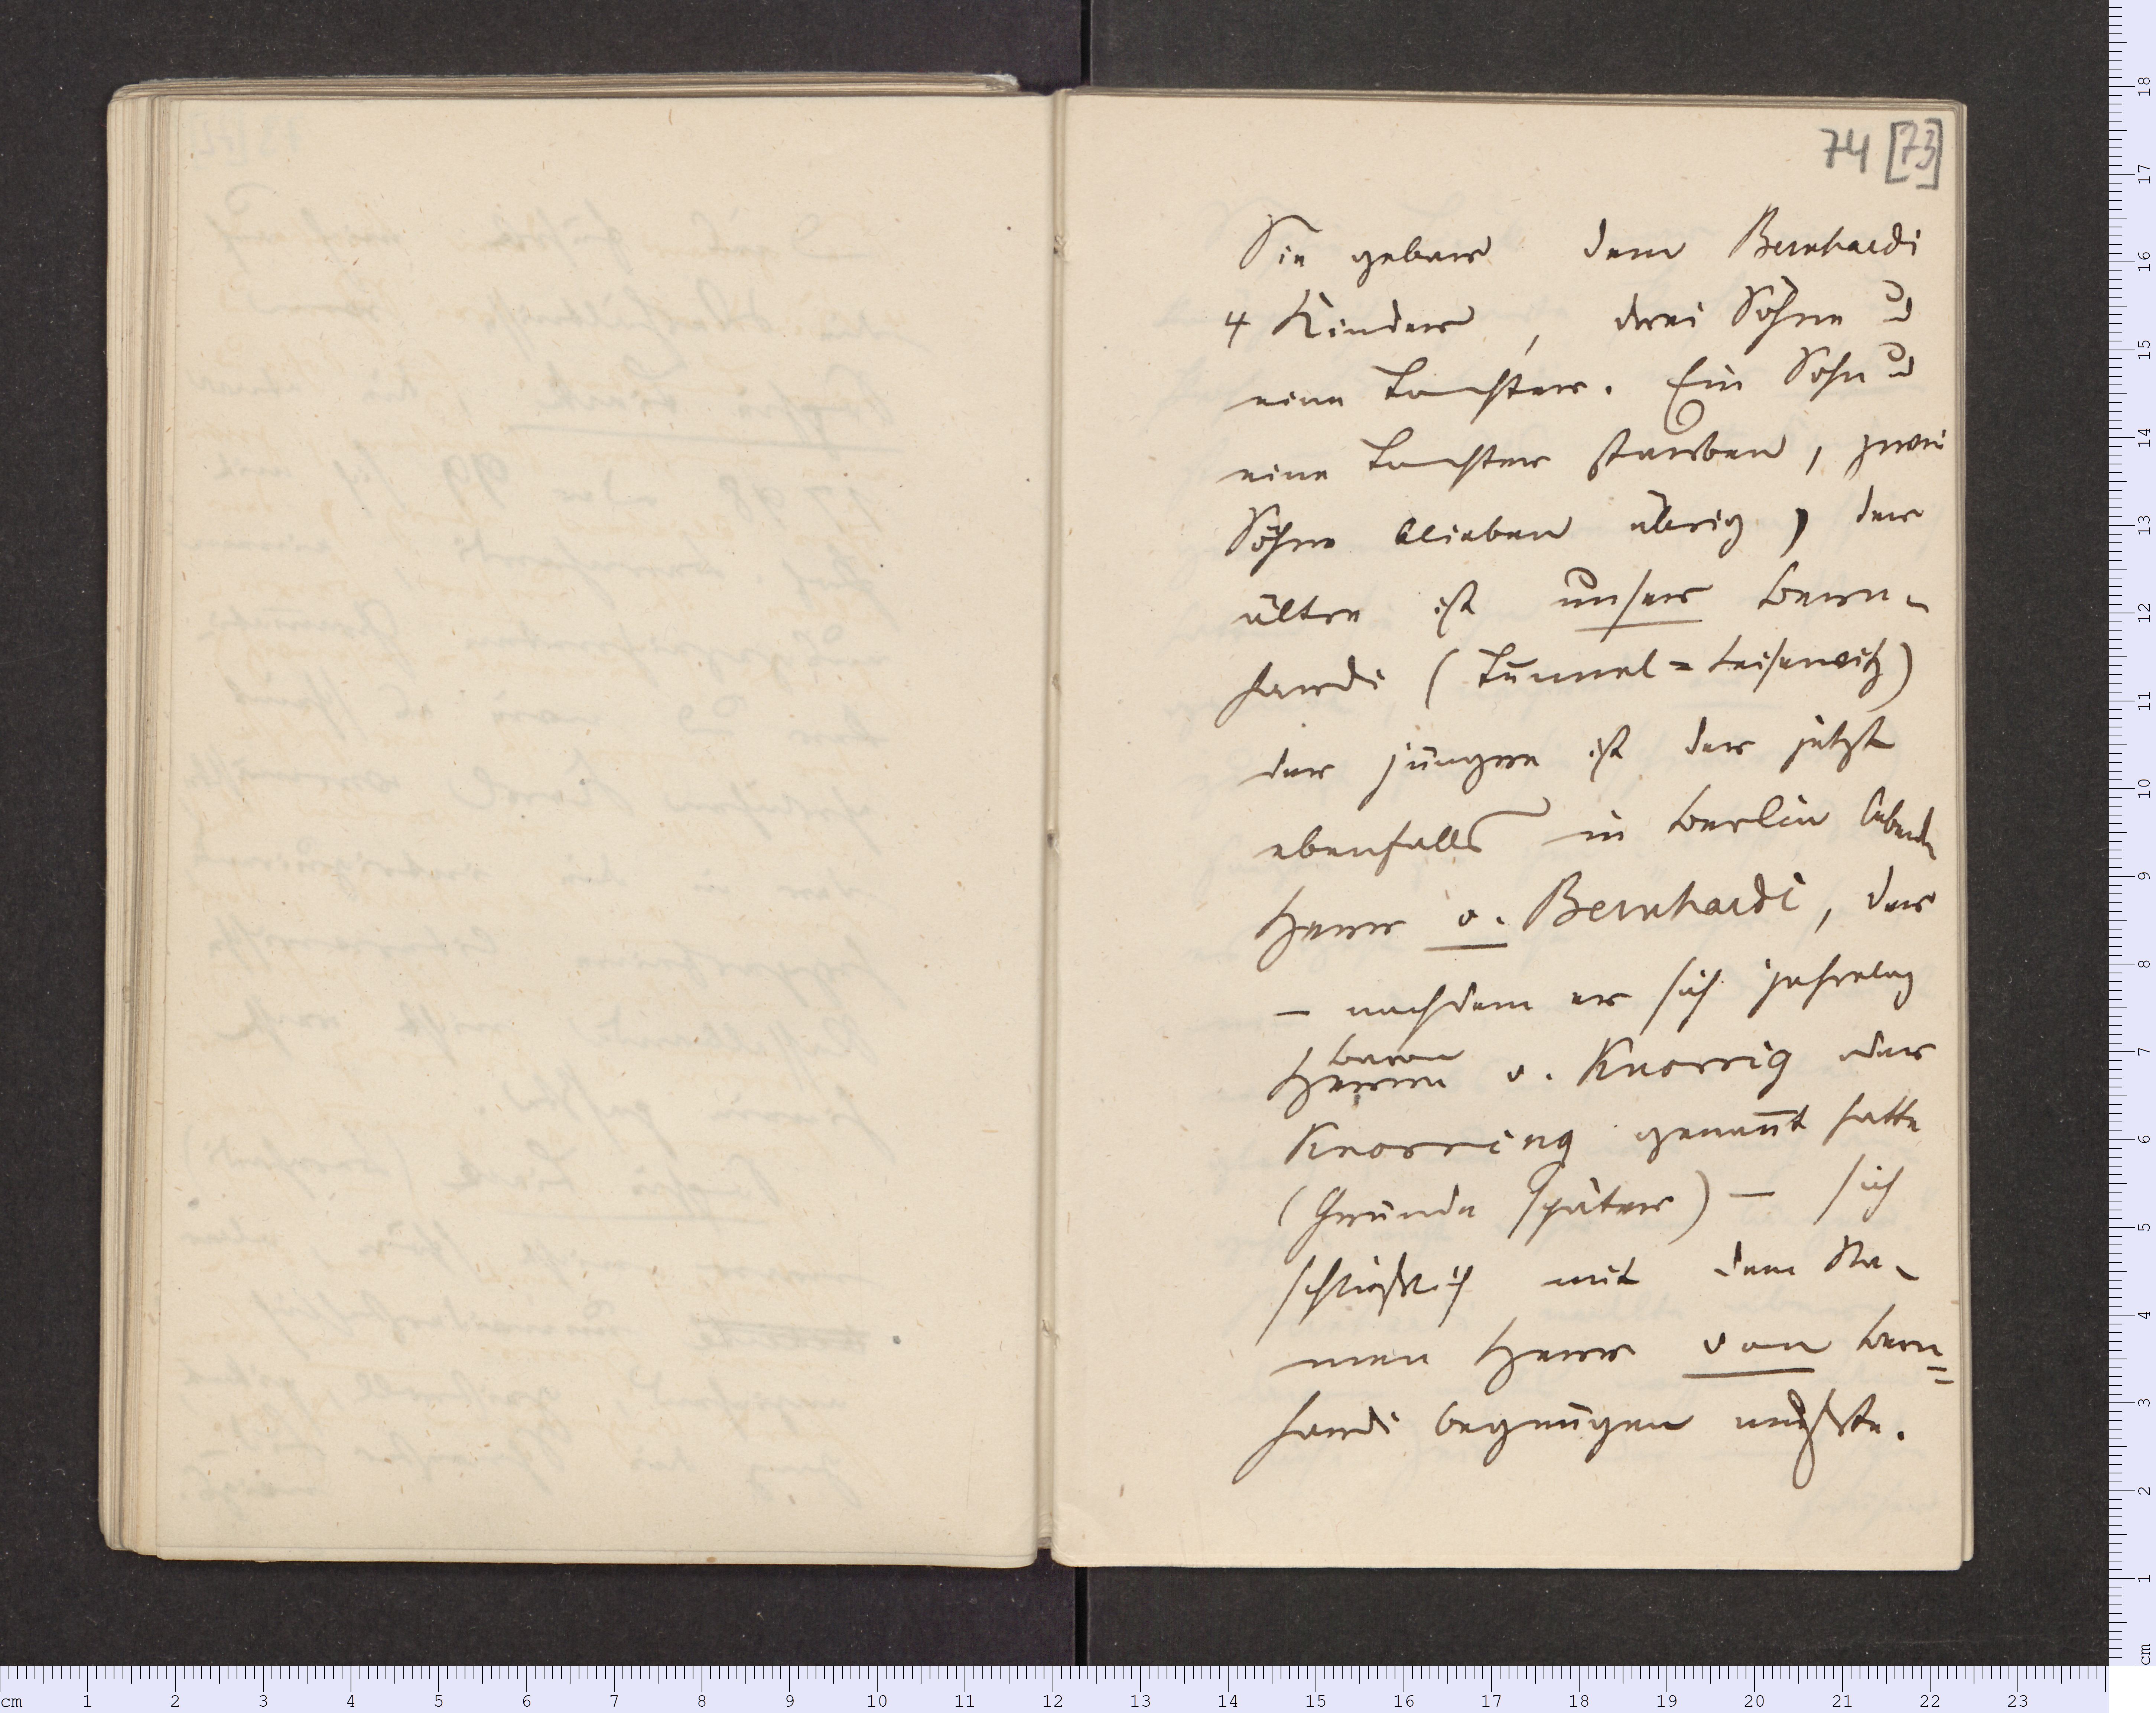 74 [73]
Sie gebar dem Bernhardi
4 Kinder, drei Söhne u
eine Tochter. Ein Sohn u
eine Tochter starben, zwei
Söhne blieben übrig, der
ältre ist unser Bern-
hardi (Tunnel=Leisewitz)
der jüngre ist der jetzt
ebenfalls in Berlin lebende
Herr v. Bernhardi, der
– nachdem er sich jahrelang
Baron
Herrn v. Knorrig oder
Knorring genannt hatte
(Gründe später) – sich
schließlich mit dem Na-
men Herr von Bern=
hardi begnügen mußte.